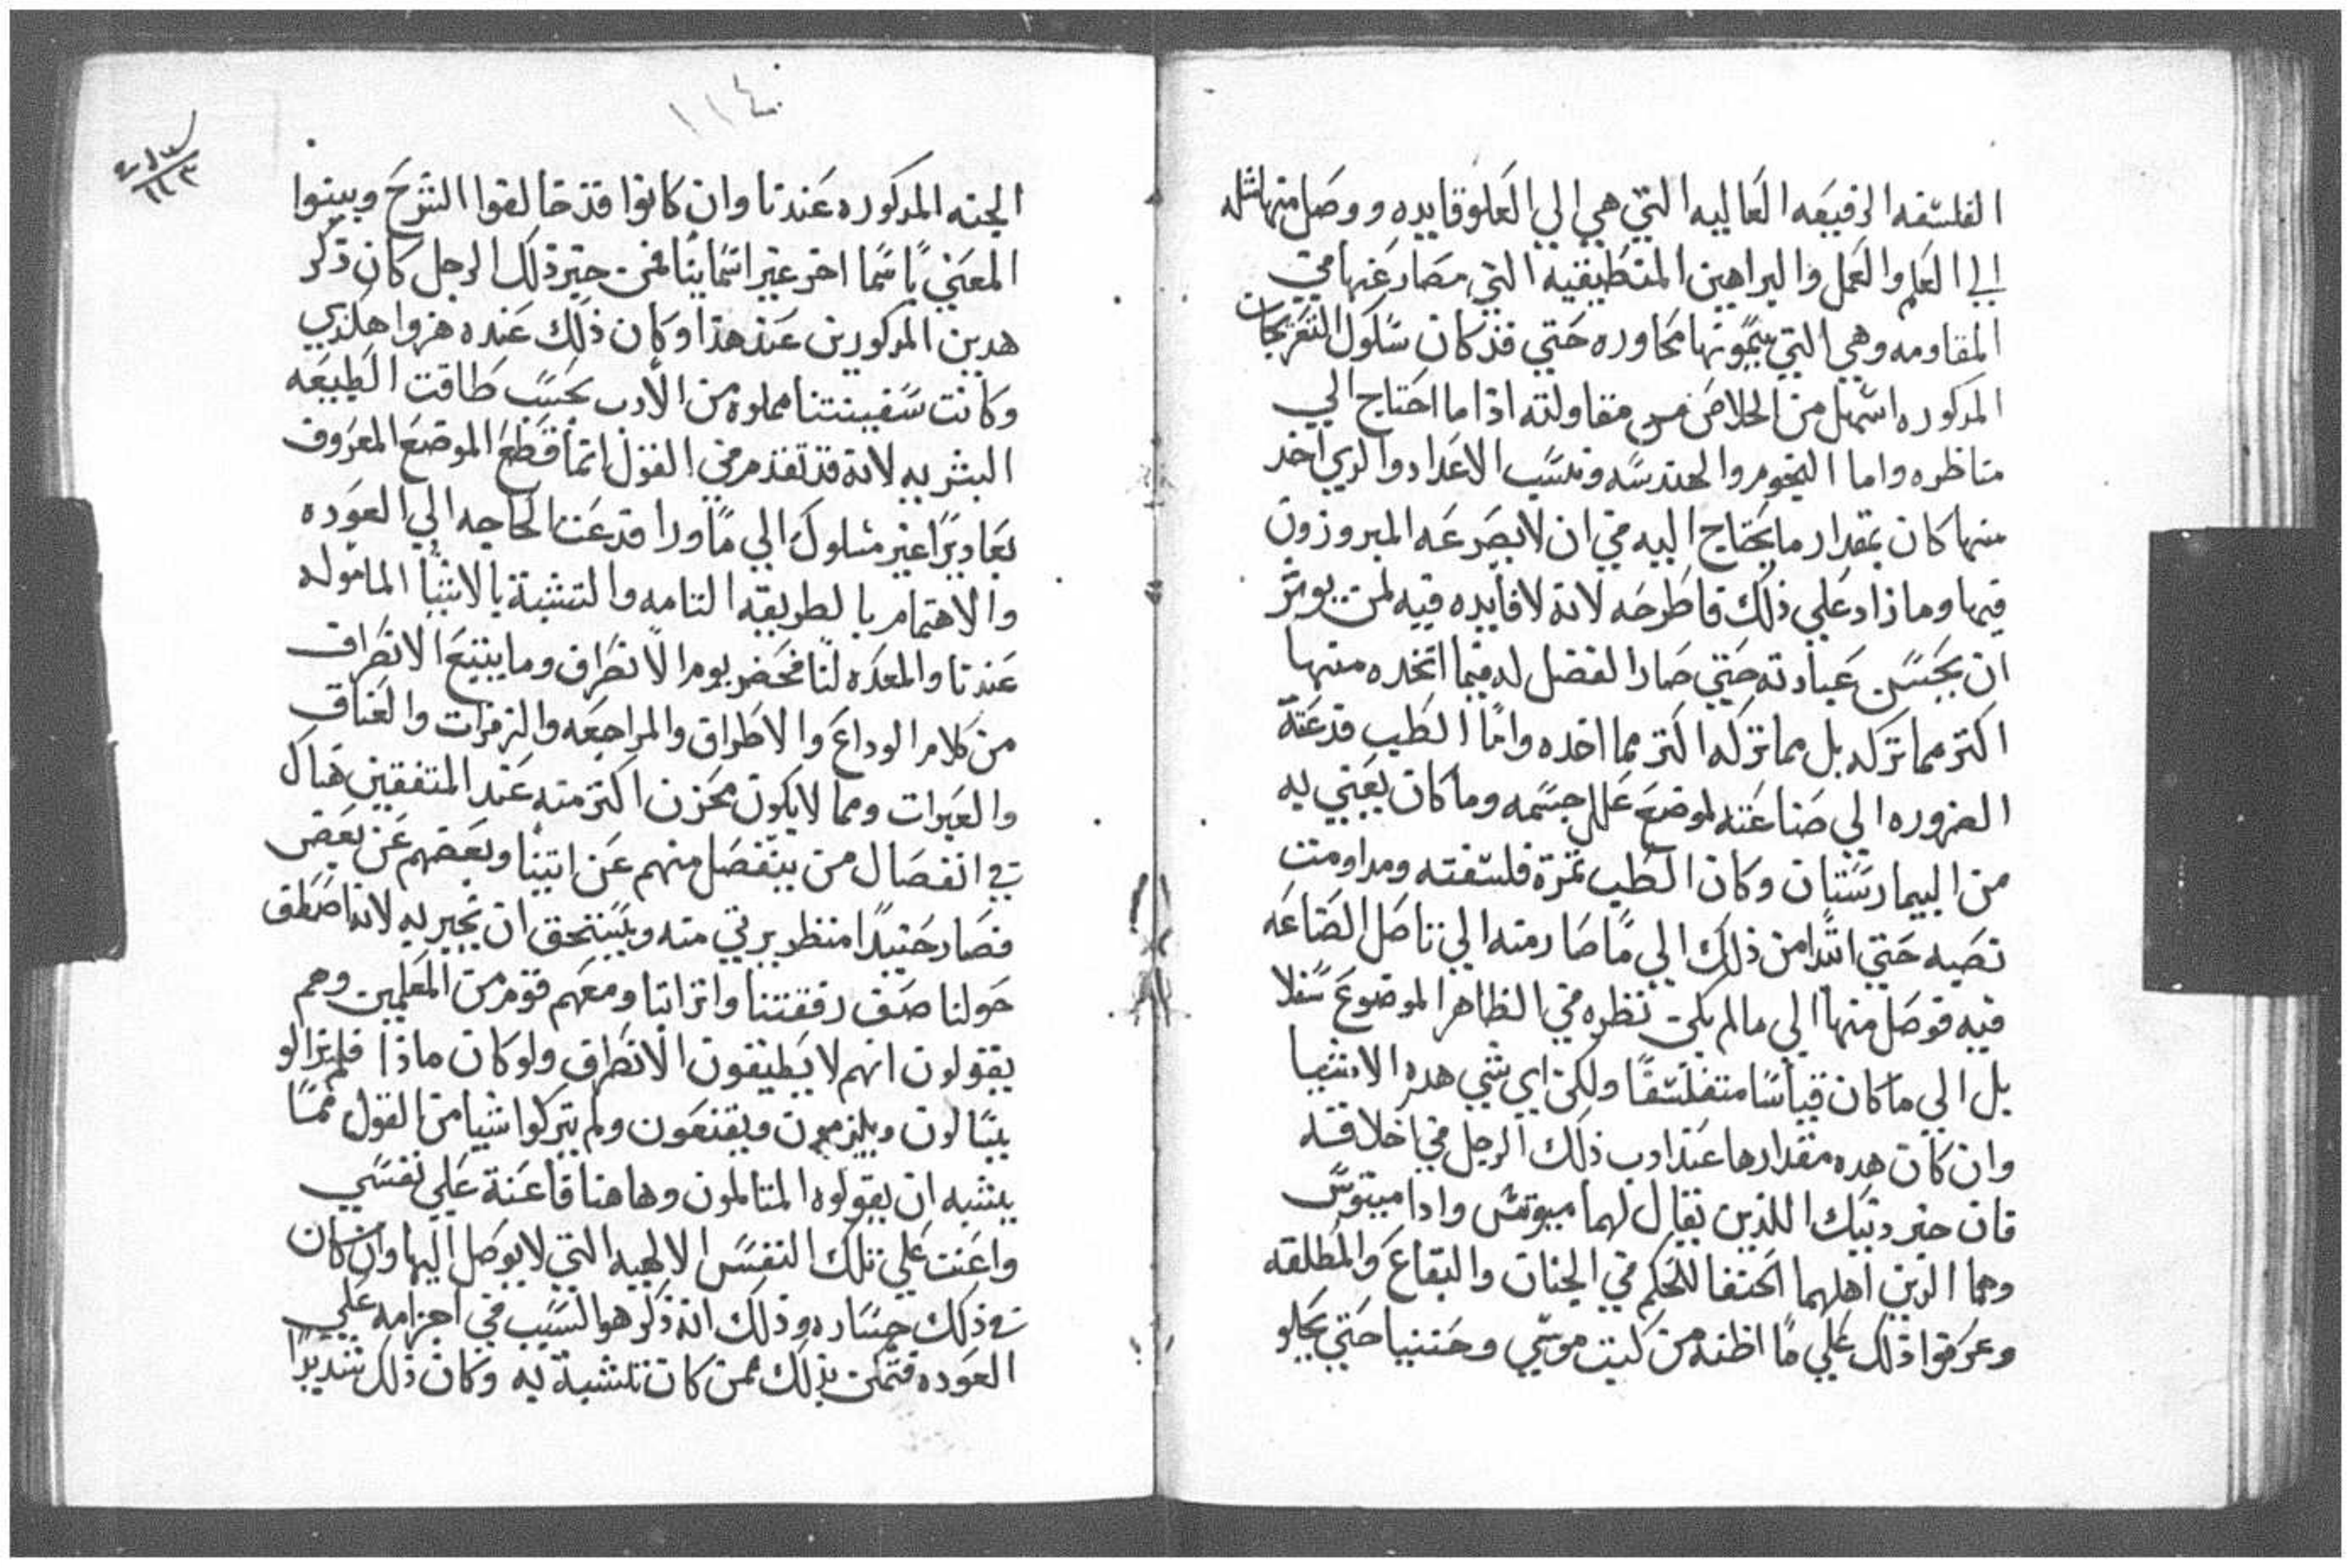 الفلسفه الرفيعه العاليه التي هي الي العلو قايده ووصل منها مثله
الي العلم والعمل والبراهين المنطيقيه التي مضار عنها في
المقاومه وهي التي يسمونها محاوره حتي قد كان سلوك التعريجات
المدكوره اسهل من الخلاص من مقاولته اذا ما احتاج الي
مناظره واما النجوم والهندسه ونسب الاعداد والدي اخد
منها كان بمقدار ما يحتاج اليه في ان لا يصرعه المبروزون
فيها وما زاد علي ذلك فاطرحه لانه لا فايده فيه لمن يوثر
ان يحسن عبادته حتي صار الفضل له فيما اتخده منها
اكتر مما تركه بل مما تركه اكتر مما اخده واما الطب فدعته
الضروره الي صناعته لموضع علل جسمه وما كان يعني به
من البيمارستان وكان الطب ثمرة فلسفته ومداومت
نصبه حتي ابتدا من ذلك الي ما صار منه الي تاصل الصناعه
فيه فوصل منها الي ما لم يكن نظره في الظاهر الموضوع سفلا
بل الي ما كان قياسا متفلسفا ولكن اي شي هده الاشيا
وان كان هده مقدارها عند ادب ذلك الرجل في اخلاقه
فان خبر دنيك اللذين يقال لهما مينوتس وادامينتوس
وهما الذين اهلهما الحنفا للحكم في الجنان والبقاع والمطلقه
وعرفوا ذلك علي ما اظنه من كتب موسي وحسبنا حتي يحلو
١١٤
الجنه المدكوره عندنا وان كانوا قد خالفوا الشرح وبينوا
المعني باسما اخر غير اسماينا فمن خبر ذلك الرجل كان ذكر
هدين المدكورين عند هذا وكان ذلك عنده هزوا هكذي
وكانت سفينتنا مملوه من الادب بحسب طاقت الطبيعه
البشريه لانه قد تقدم في القول انما قطع الموضع المعروف
بغاديرا غير مسلوك الي ما ورا قدعتنا الحاجه الي العوده
والاهتمام بالطريقه التامه والتشبة بالاشيا الماموله
عندنا والمعده لنا فحضر يوم الانصراف وما يتبع الانصراف
من كلام الوداع والاطراق والمراجعه والزفرات والعناق
والعبرات ومما لا يكون محزن اكتر منه عند المتفقين هناك
في انفصال من ينفصل منهم عن اتينا وبعضهم عن بعض
فصار حنيدا منظر يرتي منه ويستحق ان يخبر به لانه اصطف
حولنا صف رفقتنا واترابنا ومعهم قوم من المعلمين وهم
يقولون انهم لا يطيقون الانصراف ولو كان ماذا فلم يزالو
يسالون ويلزمون ويقنعون ولم يتركوا شيا من القول مما
يشبه ان يقولوه المتالمون وهاهنا قاعنة علي نفسي
واعنت علي تلك النفس الالهيه التي لا يوصل اليها وان كان
في ذلك جساره وذلك انه ذكر هو السبب في اجزامه علي
العوده فتمكن بذلك ممن كان تشبة به وكان ذلك شديدا